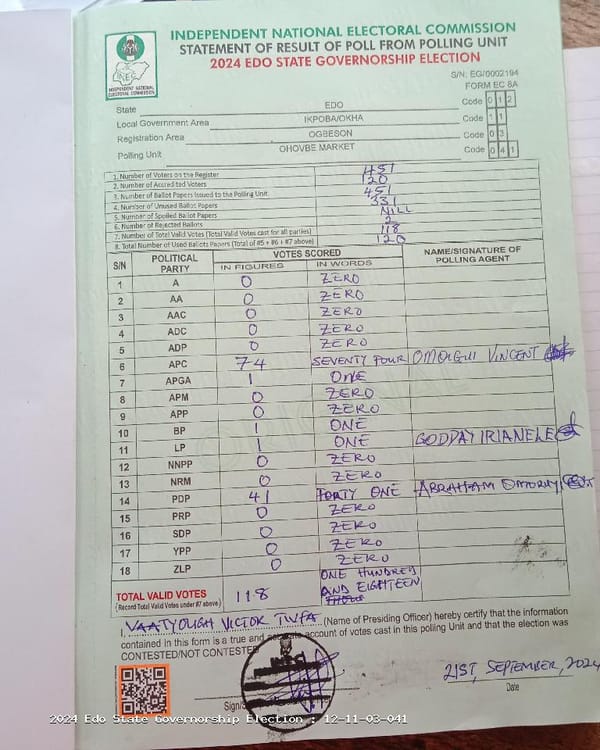 INDEPENDENT NATIONAL ELECTORAL COMMISSION
STATEMENT OF RESULT OF POLL FROM POLLING UNIT
2024 EDO STATE GOVERNORSHIP ELECTION
INDEPENDENT NATIONAL ELECTORAL COMMISSION
S/N: EG/0002194
FORM EC 8A
State EDO Code 0 1 2
Local Government Area IKPOBA/OKHA Code 1 1
Registration Area OGBESON Code 0 3
Polling Unit OHOVBE MARKET Code 0 4 1
1. Number of Voters on the Register 451
2. Number of Accredited Voters 120
3. Number of Ballot Papers Issued to the Polling Unit 451
4. Number of Unused Ballot Papers 331
5. Number of Spoiled Ballot Papers NILL
6. Number of Rejected Ballots 2
7. Number of Total Valid Votes (Total Valid Votes cast for all parties) 118
8. Total Number of Used Ballots Papers (Total of #5 + #6 + #7 above) 120
S/N POLITICAL PARTY VOTES SCORED NAME/SIGNATURE OF POLLING AGENT
IN FIGURES IN WORDS
1 A 0 ZERO
2 AA 0 ZERO
3 AAC 0 ZERO
4 ADC 0 ZERO
5 ADP 0 ZERO
6 APC 74 SEVENTY FOUR OMOIGUI VINCENT
7 APGA 1 ONE
8 APM 0 ZERO
9 APP 0 ZERO
10 BP 1 ONE
11 LP 1 ONE GODDAY IRIANELE
12 NNPP 0 ZERO
13 NRM 0 ZERO
14 PDP 41 FORTY ONE ABRAHAM
15 PRP 0 ZERO
16 SDP 0 ZERO
17 YPP 0 ZERO
18 ZLP 0 ZERO
TOTAL VALID VOTES 118 ONE HUNDRED AND EIGHTEEN
(Record Total Valid Votes under #7 above)
I, VAATYOUGH VICTOR (Name of Presiding Officer) hereby certify that the information
contained in this form is a true and account of votes cast in this polling Unit and that the election was
CONTESTED/NOT CONTESTED
21ST, SEPTEMBER, 2024
Date
2024 Edo State Governorship Election : 12-11-03-041